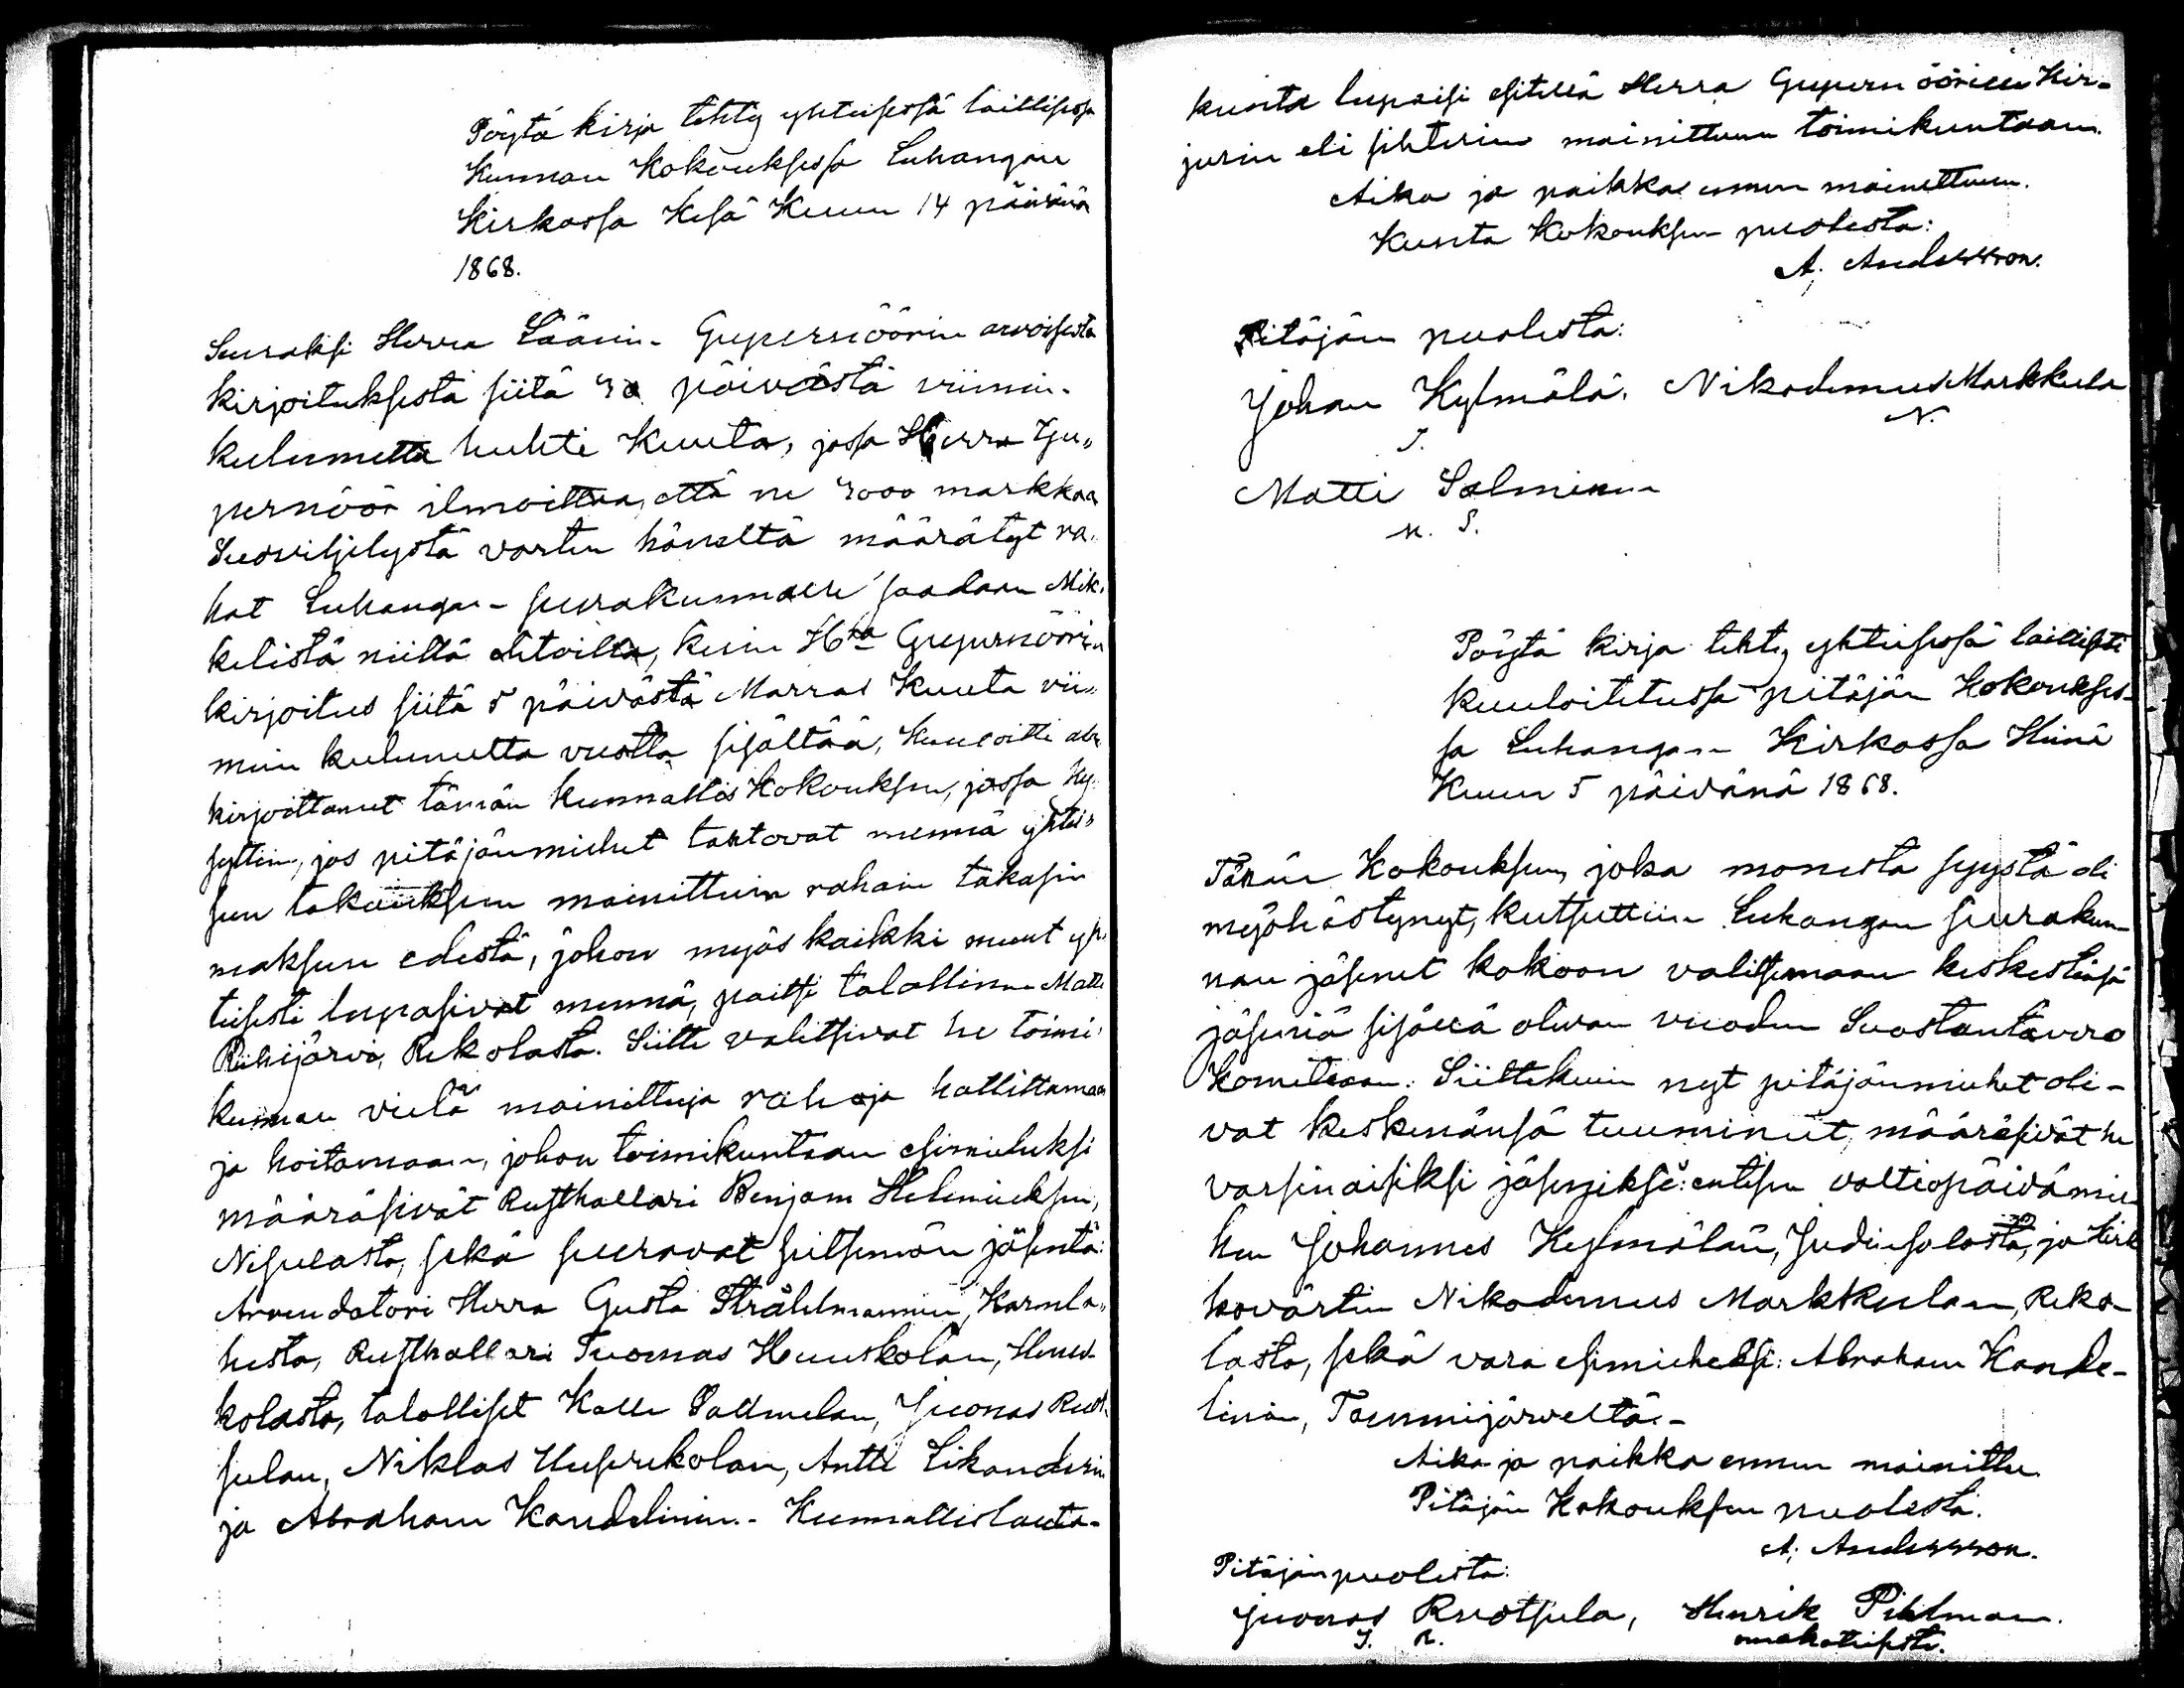 Pöytä kirja tehty yhteisessä laillisessa
Kunnan Kokouksessa Luhangan
Kirkossa Kesä Kuun 14 päivänä
1868.
Seuraksi Herra Läänin- Gupernöörin arvoisesta
kirjoituksesta siitä päivästä viimin-
kulunutta huhti Kuuta, jossa Herra Gu„
pernöör ilmoittaa, että ne 3000 markkaa
Suoviljelystä varten häneltä määrätyt ra„
hat Luhangan- seurakunnalle saadaan Mik„
kelistä niillä ehtoilla, kuin H:ra Gupernöörin
kirjoitus siitä 5 päivästä Marras Kuuta vii„
min kulunutta vuotta sisältää, Kuuloitti ala
kirjoittanut tämän kunnallis Kokouksen, jossa ky„
syttiin, jos pitäjänmiehet tahtovat mennä yhtei„
sen takaukseen mainittuin rahain takasin
maksun edestä, johon myös kaikki muut yh„
teisesti lupasivat mennä, paitsi talollinen Matti
Riihijärvi, Rekolasta. Siitte valitsivat he toimi„
kunnan vielä mainittuja rahoja hallittamaan
ja hoitamaan, johon toimikuntaan esimieheksi
määräsivät Rusthollari Benjam Heleniuksen,
Nisulasta, sekä seuravat seitsemän jäsentä:
Arrendatori Herra Gusta Stråhlmannin, Karnla„
hesta, Rusthollari Tuomas Huuskolan, Huus-
kolasta, talolliset Kalle Pallmelan, Juonas Ruot„
sulan, Niklas Huprekolan, Antti Likanderin
ja Abraham Kandelinin.- Kunnallislauta-
kunta lupaisi esitellä Herra Gupernöörille Kir-
jurin eli sihterin mainittuun toimikuntaan.
Aika ja paikka ennen mainittuun.
Kunta Kokouksen puolesta:
A. Andersson.
Pitäjän puolesta:
Johan Kylmälä. Nikodemus Markkula
J. N.
Matti Salminen
M. S.
Pöytä kirja tehty yhteisessä laillisesti
kuuloitetussa pitäjän Kokoukses-
sa Luhangan Kirkossa Heinä
Kuun 5 päivänä 1868.
Tähän Kokouksen, joka monesta syystä oli
myöhästynyt, kutsuttiin Luhangan seurakun-
nan jäsenet kokoon valitsemaan keskestänsä
jäseniä sisällä olevan vuoden Suostuntavero
Komiteaan. Siittekuin nyt pitäjänmiehet oli-
vat keskenänsä tuuminut, määräsivät he
varsinaisiksi jäseniksi: entisen valtiopäivämie-
hen Johannes Kylmälän, Judinsalosta, ja Kirk
kovärtin Nikodemus Markkulan, Reko-
lasta, sekä vara esimieheksi: Abraham Kande-
linin, Tammijärveltä.-
Aika ja paikka ennen mainittu.
Pitäjän Kokouksen puolesta.
A. Andersson.
Pitäjän puolesta:
Juonas Ruotsula, Henrik Pihlman.
J. R. omakätisesti.